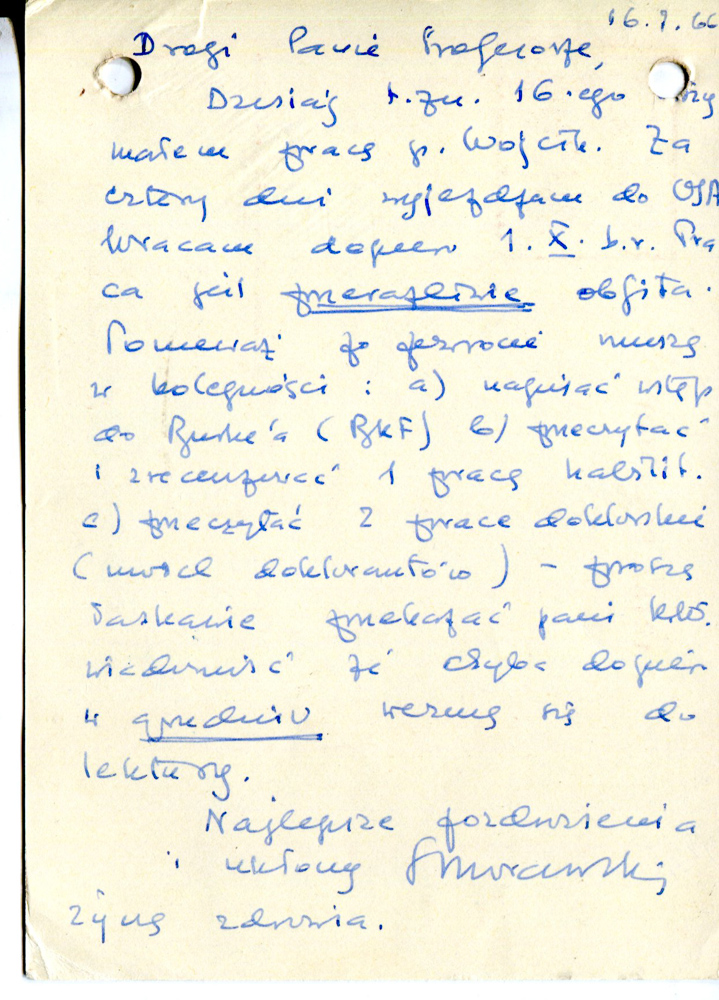 16.9.66
Drogi Panie Profesorze,
Dzisiaj t.zn. 16-ego otrzy
małem pracę p. Wójcik. Za
cztery dni wyjeżdżam do USA
Wracam dopiero 1.X. b.r. Pra
ca jest przeraźliwie obfita.
Ponieważ po powrocie muszę
w kolejności: a) napisać wstęp
do Burke'a (BKF) b) przeczytać
i zrecenzować 1 pracę habilit.
c) przeczytać 2 prace doktorskie
(moich doktorantów) – proszę
łaskawie przekazać pani
wiadomość że chyba dopiero
w grudniu wezmę się do
lektury.
Najlepsze pozdrowienia
i ukłony SMorawski
życzę zdrowia.